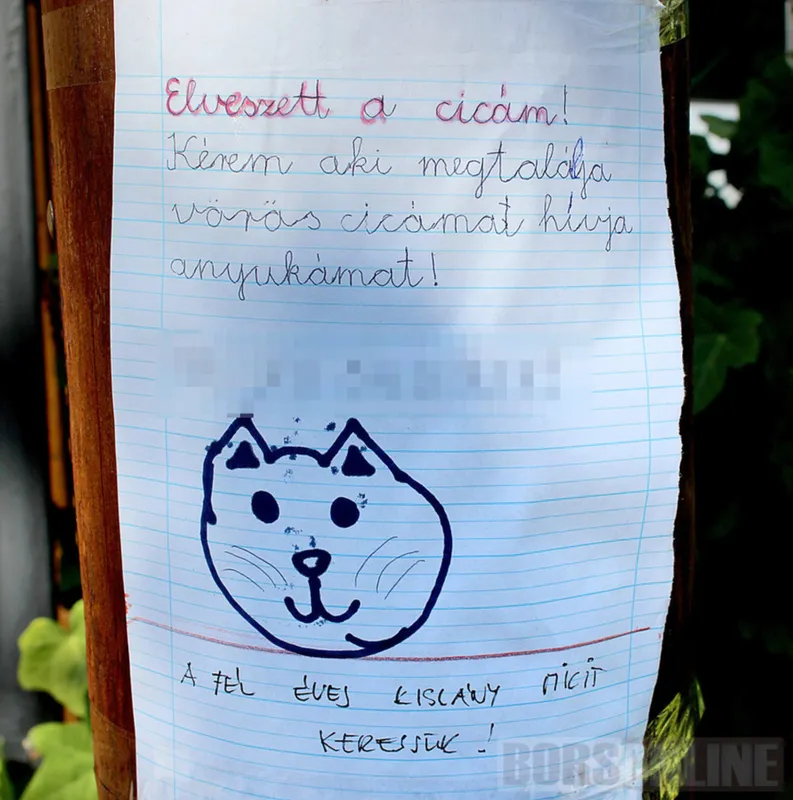 Elveszett a cicám!
Kérem aki megtalálja
vörös cicámat hívja
anyukámat!
A FÉL ÉVES KISLÁNY MICIT
KERESSÜK!
BORS ONLINE